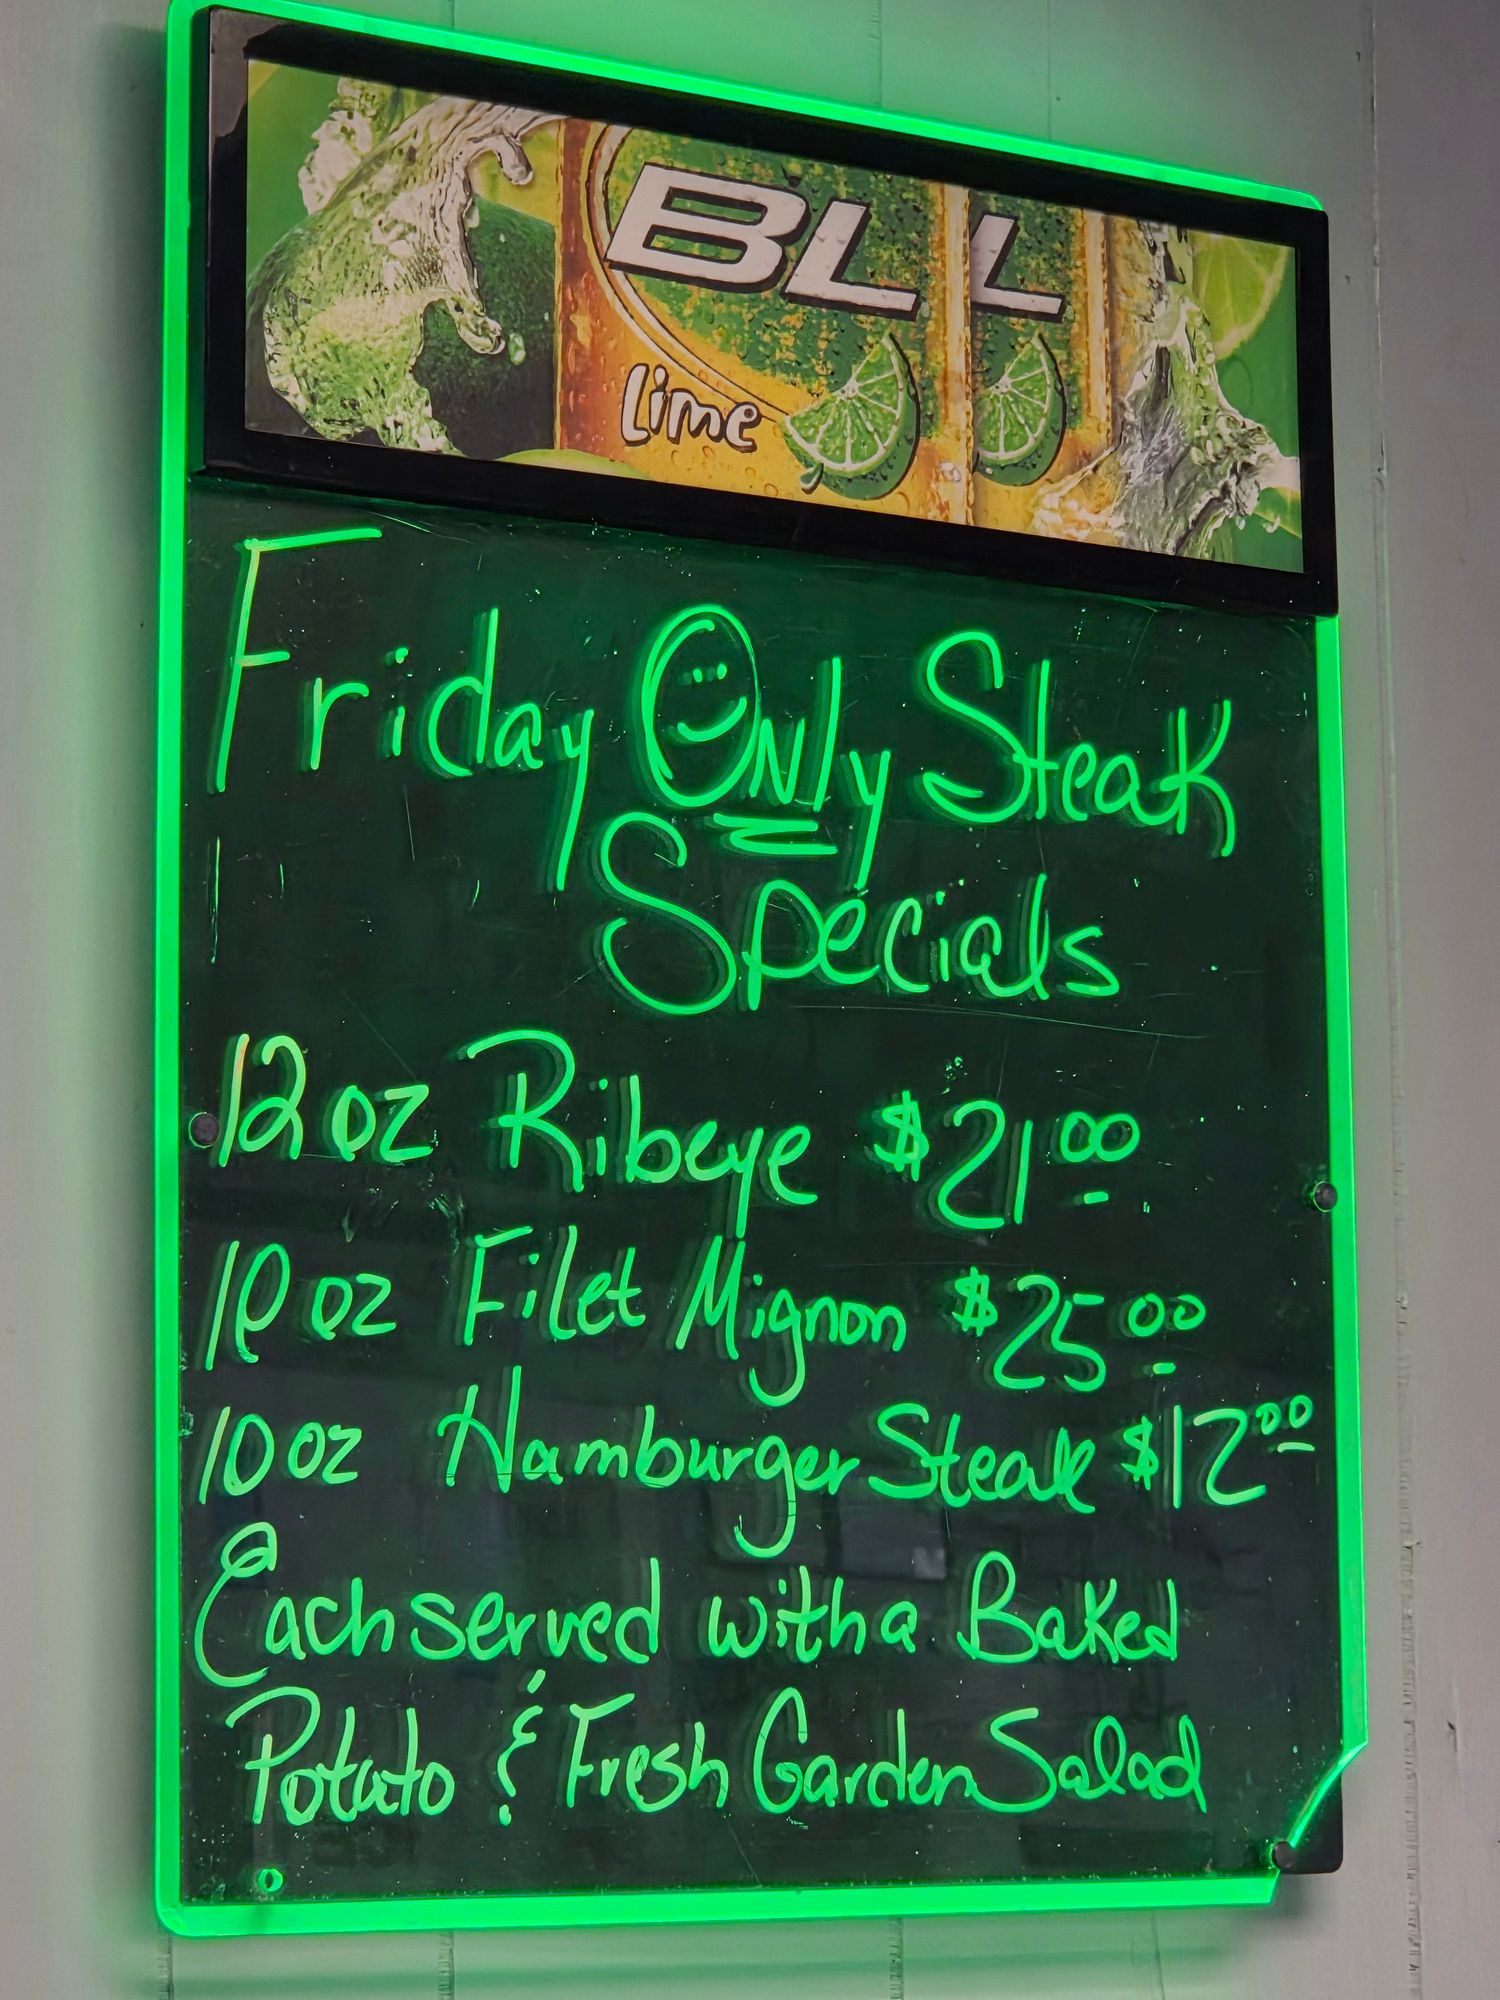 BL L
Lime
Friday Only Steak
Specials
12 oz Ribeye $21.00
10 oz Filet Mignon $25.00
10 oz Hamburger Steak $12.00
Each served with a Baked
Potato & Fresh Garden Salad